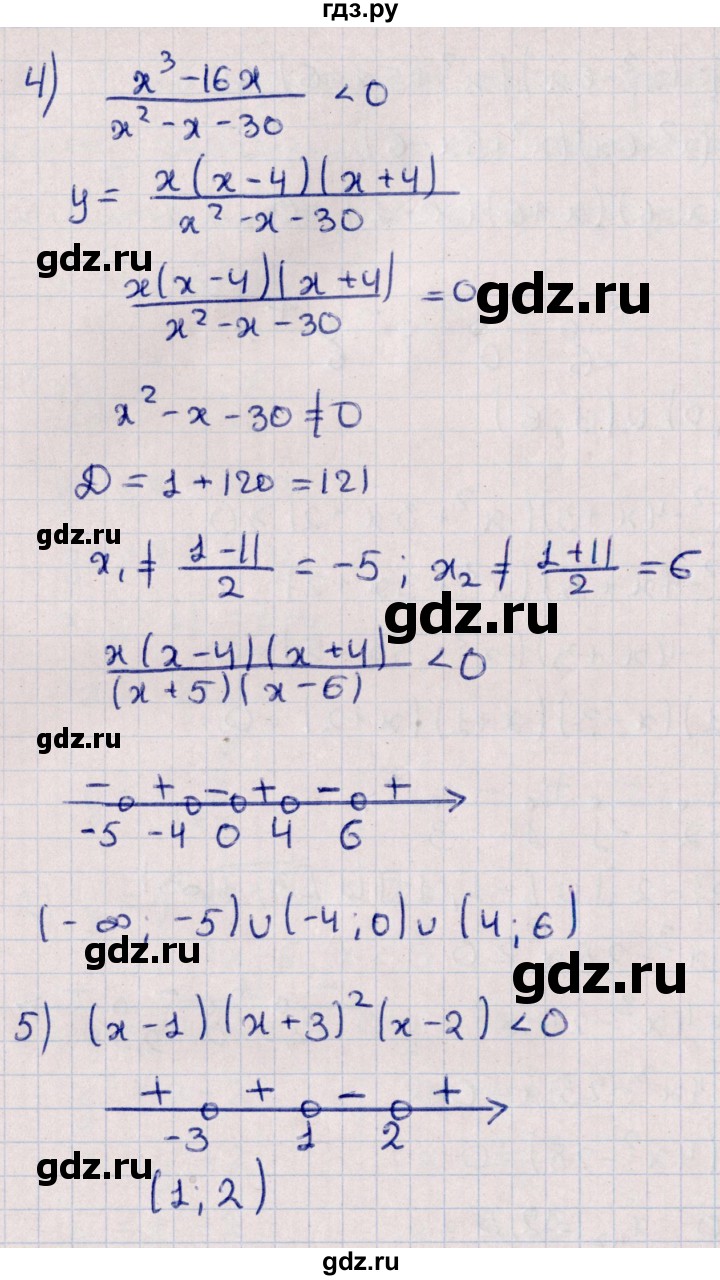 гдз.ру
4) (x³ - 16x)/(x² - x - 30) < 0
y = (x(x - 4)(x + 4))/(x² - x - 30)
gdz.ru
(x(x - 4)(x + 4))/(x² - x - 30) = 0
gdz.ru
x² - x - 30 ≠ 0
D = 1 + 120 = 121
gdz.ru
x₁ ≠ (1 - 11)/2 = -5 ; x₂ ≠ (1 + 11)/2 = 6
gdz.ru
(x(x - 4)(x + 4))/((x + 5)(x - 6)) < 0
gdz.ru
- + - + - +
-5 -4 0 4 6
(-∞; -5) ∪ (-4; 0) ∪ (4; 6)
gdz.ru
gdz.ru
5) (x - 1)(x + 3)²(x - 2) < 0
+ + - +
-3 1 2
gdz.ru
(1; 2)
gdz.ru